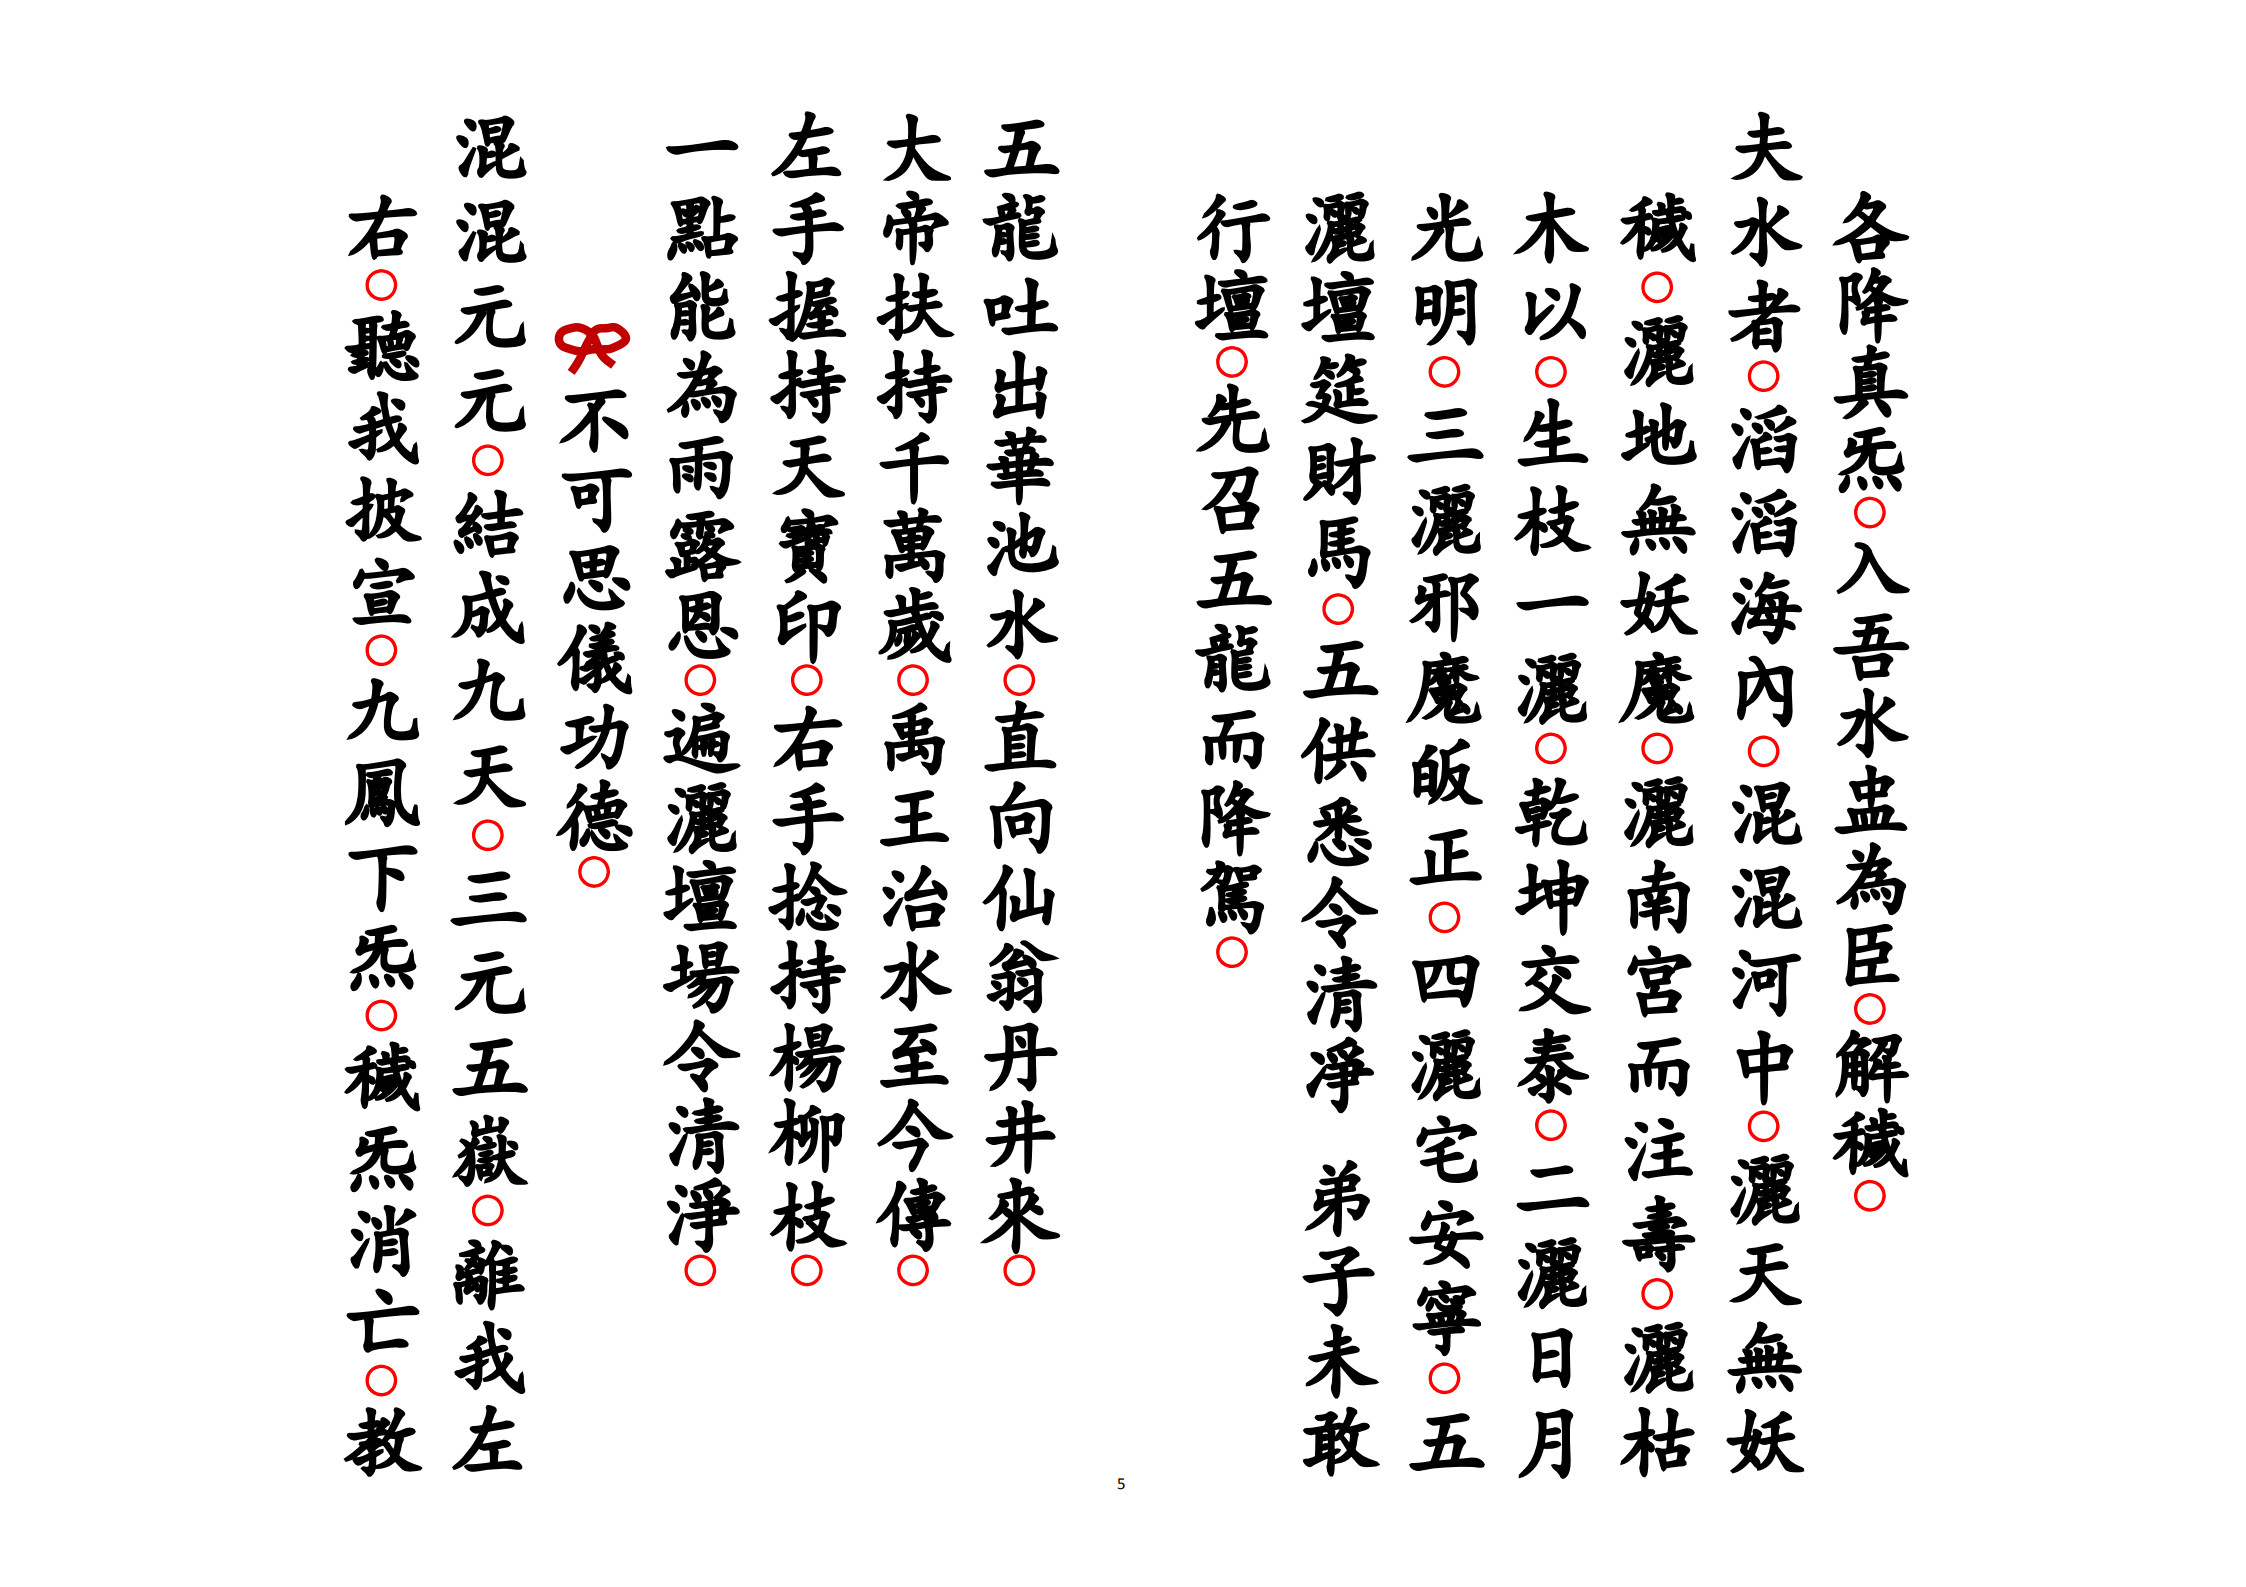 各降真炁○入吾水盅為臣○解穢○
夫水者○滔滔海內○混混河中○灑天無妖
穢○灑地無妖魔○灑南宮而注壽○灑枯
木以○生枝一灑○乾坤交泰○二灑日月
光明○三灑邪魔皈正○四灑宅安寧○五
灑壇筵財馬○五供悉令清凈 弟子未敢
行壇○先召五龍而降駕○
五龍吐出華池水○直向仙翁丹井來○
大帝扶持千萬歲○禹王治水至今傳○
左手握持天寶印○右手捻持楊柳枝○
一點能為雨露恩○遍灑壇場令清淨○
不可思儀功德○
混混元元○結成九天○三元五嶽○離我左
右○聽我披宣○九鳳下炁○穢炁消亡○教
5